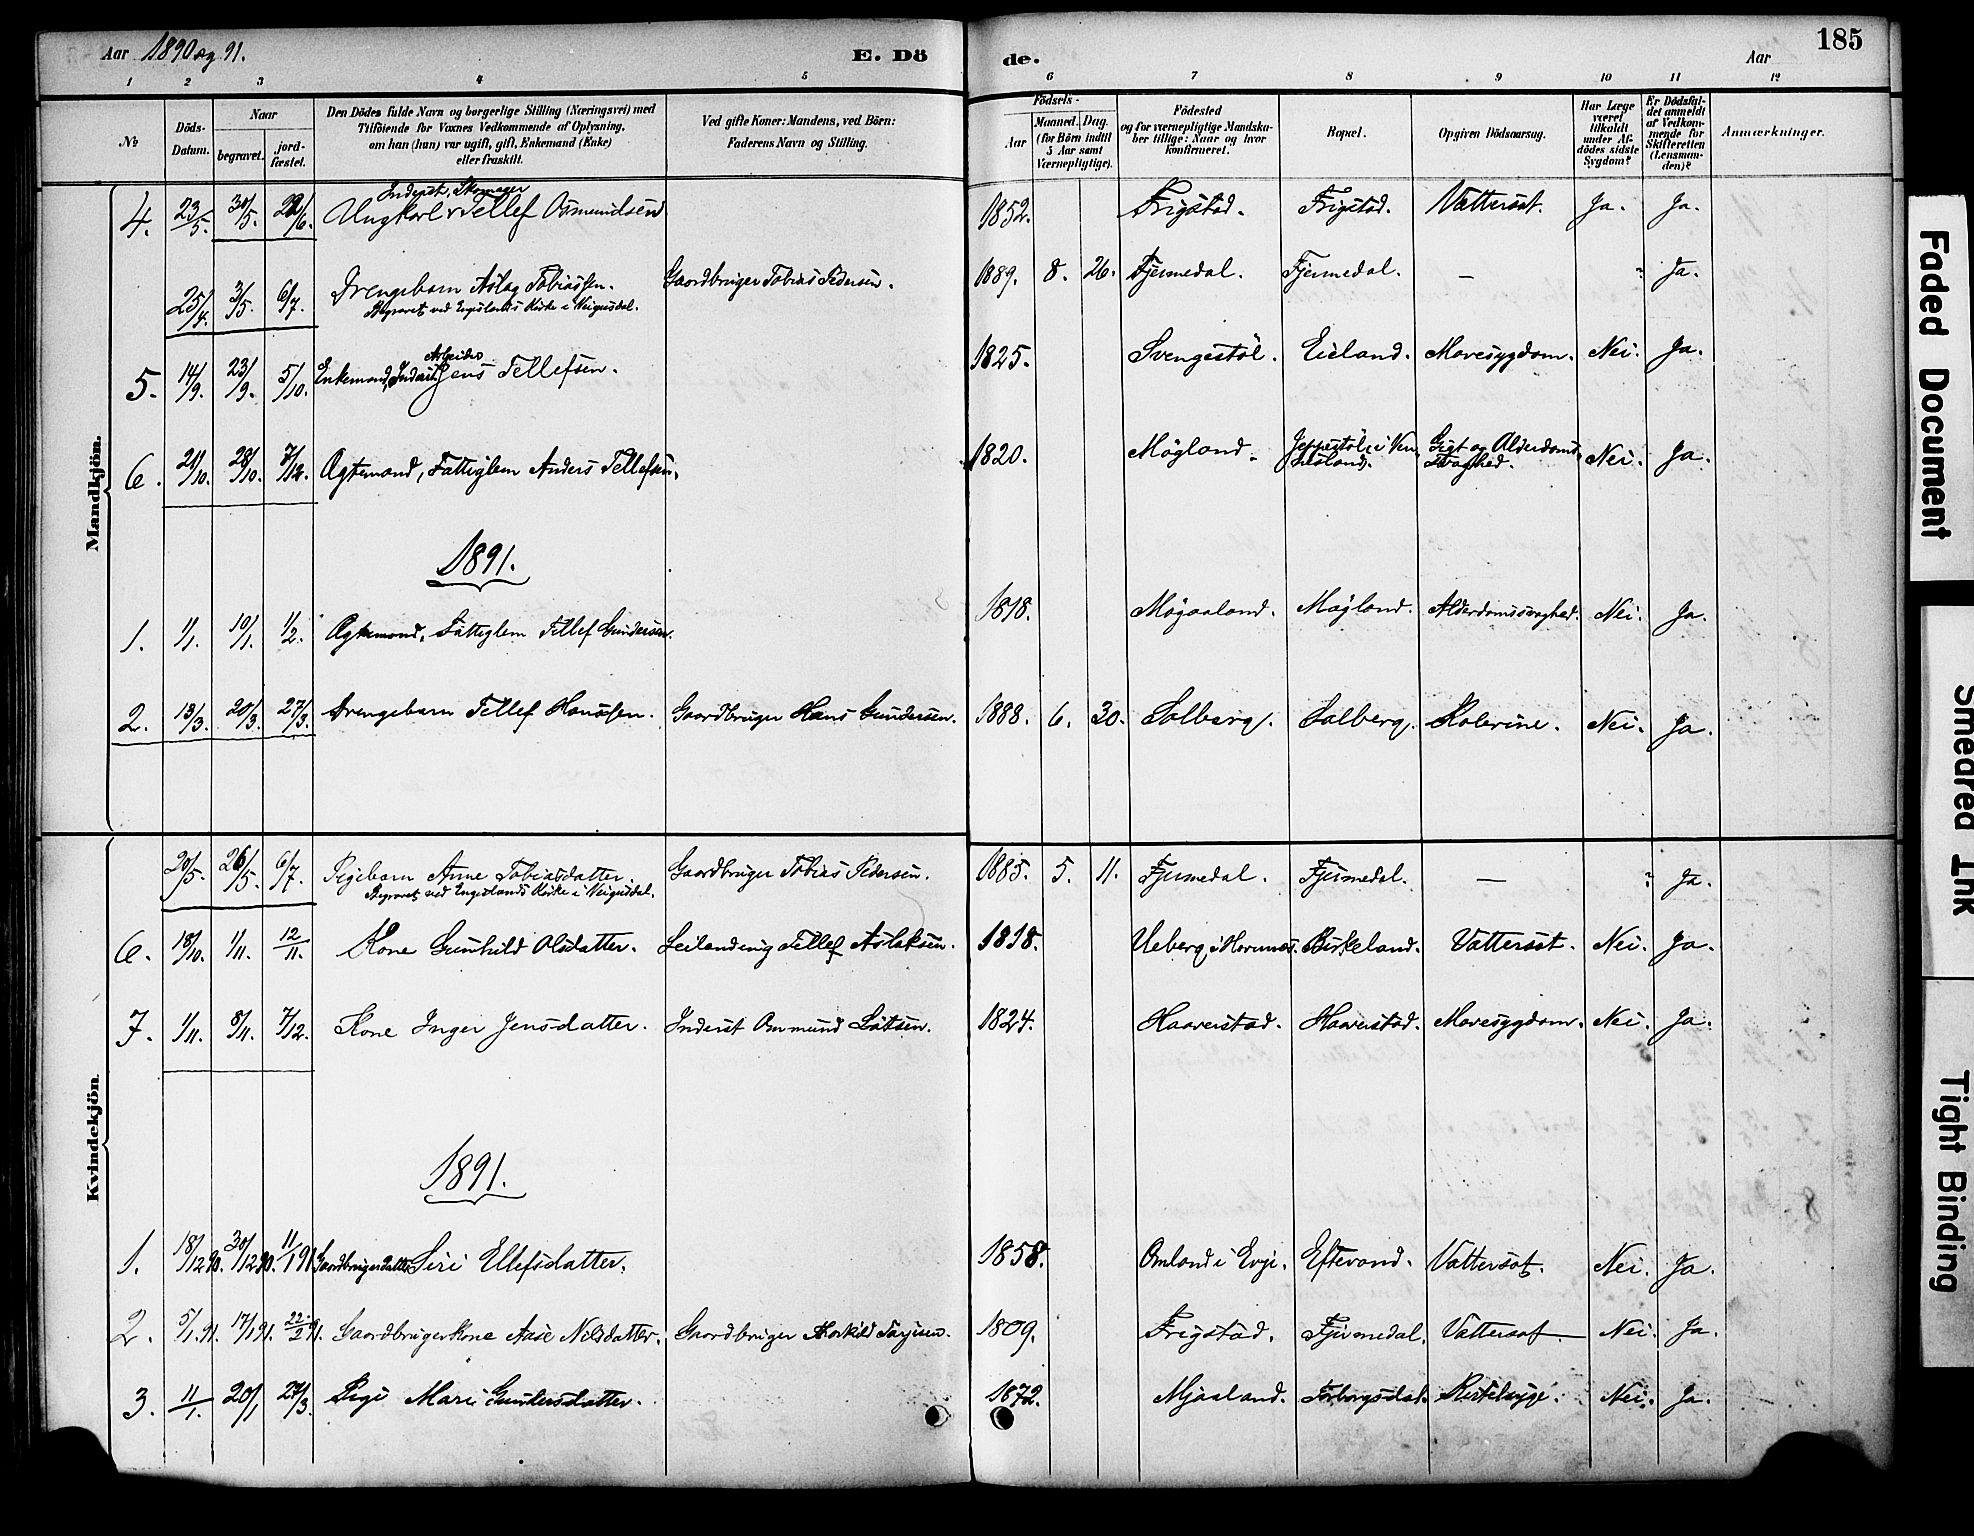 Aar 1890 og 91. E. Dö de. Aar 185
1 2 3 4 5 6 7 8 9 10 11 12
№ Döds-Datum. Naar begravet. jordfæstet. Den Dödes fulde Navn og borgerlige Stilling (Næringsvei) med Tilföiende for Voxnes Vedkommende af Oplysning, om han (hun) var ugift, gift, Enkemand (Enke) eller fraskilt. Ved gifte Koner: Mandens, ved Börn: Faderens Navn og Stilling. Födsels- Aar Maaned. Dag. (for Börn indtil 5 Aar samt Værnepligtige). Födested og for værnepligtige Mandskaber tillige: Naar og hvor konfirmeret. Bopæl. Opgiven Dödsaarsag. Har Læge været tilkaldt under Afdödes sidste Sygdom? Er Dödsfaldet anmeldt af Vedkommende for Skifteretten (Lensmanden)? Anmærkninger.
Mandkjön.
Inderst, Skomager
4. 23/5. 30/5. 22/6. Ungkarl Tellef Osmundsen 1852. Frigstad. Frigstad. Vattersot. Ja. Ja.
25/4. 3/5. 6/7. Drengebarn Aslag Tobiassen. Gaardbruger Tobias Pedersen. 1889. 8. 26. Fjermedal. Fjermedal. — ? Ja.
Begravet ved Engislands Kirke i Veigusdal.
Arbeider
5. 14/9. 23/9. 5/10. Enkemand, Inderst Jens Tellefsen. 1825. Svengestöl. Eieland. Mavesygdom. Nei. Ja.
6. 21/10. 28/10. 7/12. Ægtemand, Fattiglem Anders Tellefsen. 1820. Mögland. Jeppestöl i Ven- Gigt og Alderdoms- Nei. Ja.
nesland. svaghed.
1891.
1. 1/1. 10/1. 1/2. Ægtemand, Fattiglem Tellef Gundersen. 1818. Mögaaland. Mögland. Alderdomssvaghed. Nei. Ja.
2. 13/3. 20/3. 27/3. Drengebarn Tellef Hanssen. Gaardbruger Hans Gundersen. 1888. 6. 30. Solberg. Solberg. Kolerine. Nei. Ja.
Kvindekjön.
20/5. 26/5. 6/7. Pigebarn Anne Tobiasdatter. Gaardbruger Tobias Pedersen. 1885. 5. 11. Fjermedal. Fjermedal. — ? Ja.
Begravet ved Engislands Kirke i Veigusdal.
6. 18/10. 1/11. 12/11. Kone Gunhild Olsdatter. Leilending Tellef Aslaksen. 1818. Ueberg i Hornnes. Birkeland. Vattersot. Nei. Ja.
7. 1/11. 8/11. 7/12. Kone Inger Jensdatter. Inderst Ommund 1824. Haaverstad. Haaverstad. Mavesygdom. Nei. Ja.
1891.
1. 18/12 90. 30/12 90. 11/1 91. Gaardbrugerdatter Siri Ellefsdatter. 1858. Omland i Evje. Eftevand. Vattersot. Nei. Ja.
2. 5/1. 91. 17/1 91. 22/2 91. Gaardbrugerkone Aase Nilsdatter. Gaardbruger Torkild Tarjesen. 1809. Frigstad. Fjermedal. Vattersot. Nei. Ja.
3. 11/1. 20/1 27/3. Pige Mari Gundersdatter. 1872. Mjaaland. Nei. Ja.
Faded Document
Smeared Ink
Tight Binding